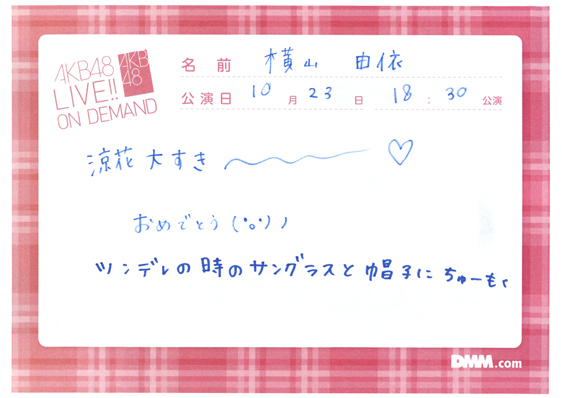 AKB48
LIVE!!
ON DEMAND
AKB
48
名 前 横山 由依
公演日 10 月 23 日 18 : 30 公演
涼花大すき 〜〜 ♡
おめでとう (°o°)ノ
ツンデレの時のサングラスと帽子にちゅーもく
DMM.com